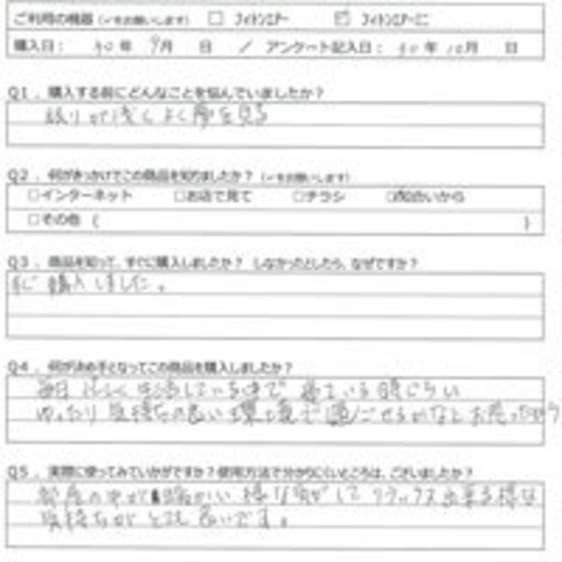 ご利用の機器（✓をお願いします） □ フィトンエアー ☑ フィトンエアーミニ
購入日： 30年 9月 日 ／ アンケート記入日：30年10月 日
Q1．購入する前にどんなことを悩んでいましたか？
眠りが浅くよく夢を見る
Q2．何がきっかけでこの商品を知りましたか？（✓をお願いします）
□インターネット □お店で見て □チラシ ☑知合いから
□その他（ ）
Q3．商品を知って、すぐに購入しましたか？ しなかったとしたら、なぜですか？
すぐ購入しました。
Q4．何が決め手となってこの商品を購入しましたか？
毎日忙しく生活しているので寝ている時ぐらい
ゆったり気持ちの良い環境で過ごせるかなとお思ったから
Q5．実際に使ってみていかがですか？使用方法で分かりにくいところは、ございましたか？
部屋の中が 様な気がして リラックス出来る様な
気持ちがとても良いです。